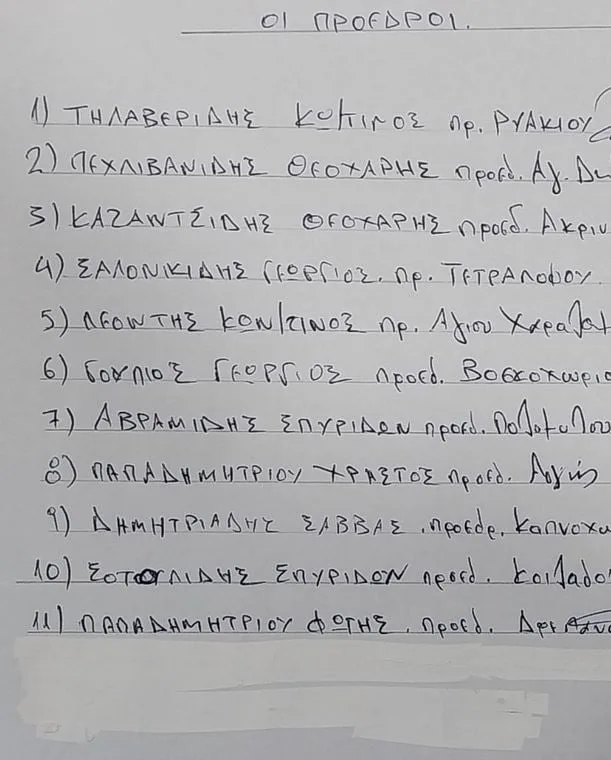 ΟΙ ΠΡΟΕΔΡΟΙ.
1) ΤΗΛΑΒΕΡΙΔΗΣ ΚΩΚΙΝΟΣ πρ. ΡΥΑΚΙΟΥ
2) ΠΕΧΛΙΒΑΝΙΔΗΣ ΘΕΟΧΑΡΗΣ προεδ. Αγ. Δη
3) ΚΑΖΑΝΤΣΙΔΗΣ ΘΕΟΧΑΡΗΣ προεδ. Ακριν
4) ΣΑΛΟΝΙΚΙΔΗΣ ΓΕΩΡΓΙΟΣ. πρ. ΤΕΤΡΑΛΟΦΟΥ.
5) ΛΕΟΝΤΗΣ ΚΩΝ/ΤΙΝΟΣ πρ. Αγιου Χαραλαμ
6) ΓΟΥΝΙΟΣ ΓΕΩΡΓΙΟΣ προεδ. Βοσκοχωριο
7) ΑΒΡΑΜΙΔΗΣ ΣΠΥΡΙΔΩΝ προεδ. Πολυμυλου
8) ΠΑΠΑΔΗΜΗΤΡΙΟΥ ΧΡΗΣΤΟΣ προεδ. Αυγής
9) ΔΗΜΗΤΡΙΑΔΗΣ ΣΑΒΒΑΣ. προεδρ. Καπνοχω
10) ΣΩΤΗΡΛΙΔΗΣ ΣΠΥΡΙΔΩΝ προεδ. Κοιλαδο
11) ΠΑΠΑΔΗΜΗΤΡΙΟΥ ΦΩΤΗΣ. προεδ. Δρε